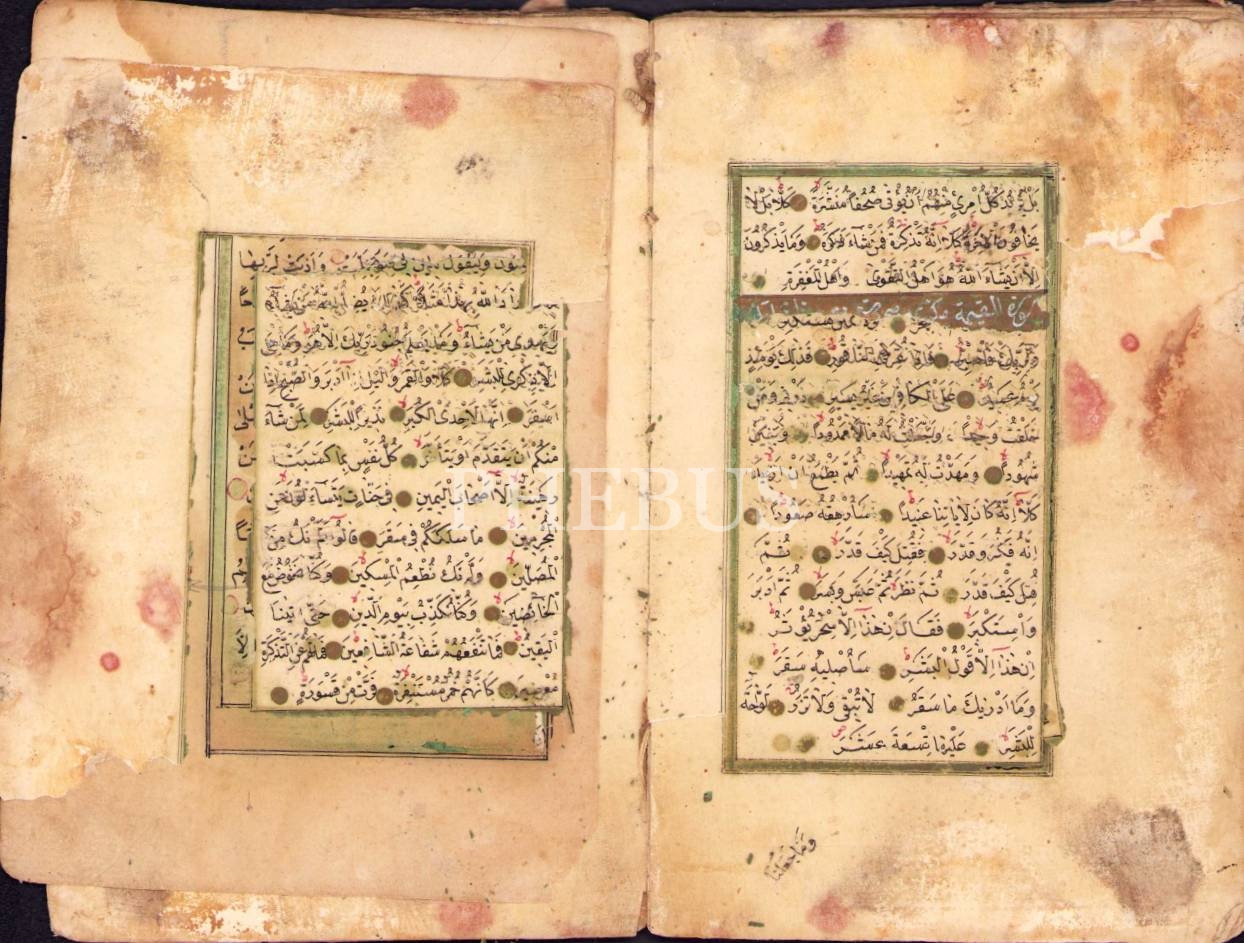 بَلْ يُرِيدُ كُلُّ امْرِئٍ مِنْهُمْ أَنْ يُؤْتَى صُحُفًا مُنَشَّرَةً كَلَّا بَلْ لَا
يَخَافُونَ الْآخِرَةَ كَلَّا إِنَّهُ تَذْكِرَةٌ فَمَنْ شَاءَ ذَكَرَهُ وَمَا يَذْكُرُونَ
إِلَّا أَنْ يَشَاءَ اللَّهُ هُوَ أَهْلُ التَّقْوَى وَأَهْلُ الْمَغْفِرَةِ
سورة القيمة
تَمْنُنْ تَسْتَكْثِرُ
وَلِرَبِّكَ فَاصْبِرْ فَإِذَا نُقِرَ فِي النَّاقُورِ فَذَلِكَ يَوْمَئِذٍ
يَوْمٌ عَسِيرٌ عَلَى الْكَافِرِينَ غَيْرُ يَسِيرٍ ذَرْنِي وَمَنْ
خَلَقْتُ وَحِيدًا وَجَعَلْتُ لَهُ مَالًا مَمْدُودًا وَبَنِينَ
شُهُودًا وَمَهَّدْتُ لَهُ تَمْهِيدًا ثُمَّ يَطْمَعُ أَنْ أَزِيدَ
كَلَّا إِنَّهُ كَانَ لِآيَاتِنَا عَنِيدًا سَأُرْهِقُهُ صَعُودًا
إِنَّهُ فَكَّرَ وَقَدَّرَ فَقُتِلَ كَيْفَ قَدَّرَ ثُمَّ
قُتِلَ كَيْفَ قَدَّرَ ثُمَّ نَظَرَ ثُمَّ عَبَسَ وَبَسَرَ ثُمَّ أَدْبَرَ
وَاسْتَكْبَرَ فَقَالَ إِنْ هَذَا إِلَّا سِحْرٌ يُؤْثَرُ
إِنْ هَذَا إِلَّا قَوْلُ الْبَشَرِ سَأُصْلِيهِ سَقَرَ
وَمَا أَدْرِيكَ مَا سَقَرُ لَا تُبْقِي وَلَا تَذَرُ لَوَّاحَةٌ
لِلْبَشَرِ عَلَيْهَا تِسْعَةَ عَشَرَ
وَمَا جَعَلْنَا
وَأَذِنَتْ لِرَبِّهَا
أَرَادَ اللَّهُ بِهَذَا مَثَلًا كَذَلِكَ يُضِلُّ اللَّهُ مَنْ يَشَاءُ
وَيَهْدِي مَنْ يَشَاءُ وَمَا يَعْلَمُ جُنُودَ رَبِّكَ إِلَّا هُوَ وَمَا هِيَ
إِلَّا ذِكْرَى لِلْبَشَرِ كَلَّا وَالْقَمَرِ وَاللَّيْلِ إِذْ أَدْبَرَ وَالصُّبْحِ إِذَا
أَسْفَرَ إِنَّهَا لَإِحْدَى الْكُبَرِ نَذِيرًا لِلْبَشَرِ لِمَنْ شَاءَ
مِنْكُمْ أَنْ يَتَقَدَّمَ أَوْ يَتَأَخَّرَ كُلُّ نَفْسٍ بِمَا كَسَبَتْ
رَهِينَةٌ إِلَّا أَصْحَابَ الْيَمِينِ فِي جَنَّاتٍ يَتَسَاءَلُونَ عَنِ
الْمُجْرِمِينَ مَا سَلَكَكُمْ فِي سَقَرَ قَالُوا لَمْ نَكُ مِنَ
الْمُصَلِّينَ وَلَمْ نَكُ نُطْعِمُ الْمِسْكِينَ وَكُنَّا نَخُوضُ مَعَ
الْخَائِضِينَ وَكُنَّا نُكَذِّبُ بِيَوْمِ الدِّينِ حَتَّى أَتَينَا
الْيَقِينُ فَمَا تَنْفَعُهُمْ شَفَاعَةُ الشَّافِعِينَ فَمَا لَهُمْ عَنِ التَّذْكِرَةِ
مُعْرِضِينَ كَأَنَّهُمْ حُمُرٌ مُسْتَنْفِرَةٌ فَرَّتْ مِنْ قَسْوَرَةٍ
PHEBUS